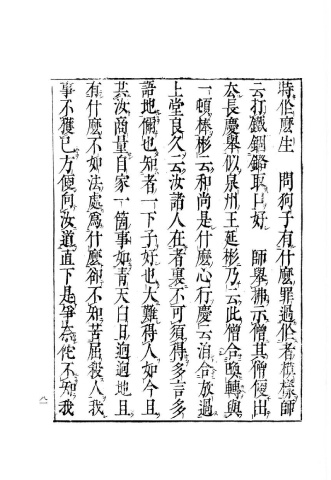 時作麽生　問狗子有什麽罪過作者模樣師
云打鐵鋼鉻取口好　師舉拂示僧其僧便出
去長慶舉似泉州王延彬乃云此僧合喚轉與
一頓棒彬云和尚是什麽心行慶云洎合放過
上堂良久云汝諸人在者裏不可須得多言多
語地㒹也知者一下子好也大難得人如今且
共汝商量自家一箇事如靑天白日逈逈地且
有什麽不如法處爲什麽卻不知苦屈殺人我
事不獲已方便向汝道直下是爭奈佗不知我